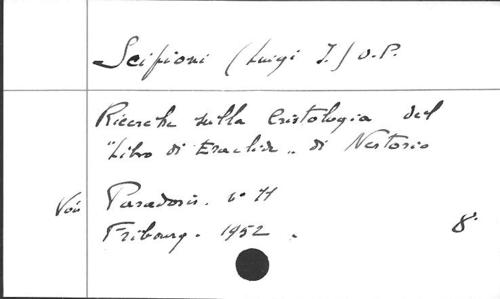 Scipioni (Luigi I.) O.P.
Ricerche sulla Cristologia del
"Libro di Eraclide" di Nestorio
Voir Paradosis. n° 11
Fribourg. 1952. 8°